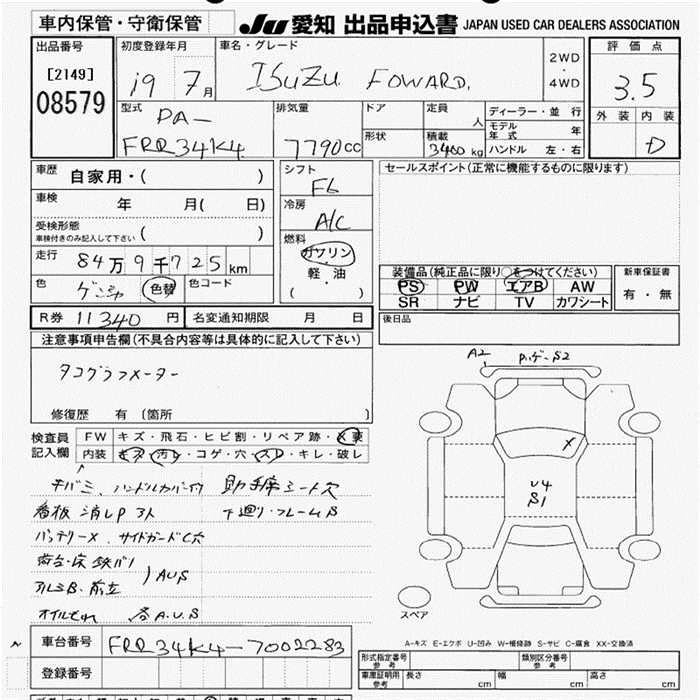 車内保管・守衛保管 JU 愛知 出品申込書 JAPAN USED CAR DEALERS ASSOCIATION
出品番号 初度登録年月 車名・グレード 2WD・4WD 評価点
[2149]
08579 19 7月 ISUZU FOWARD. 3.5
型式 排気量 ドア 定員 ディーラー・並 行 外装 内装
PA- 人 モデル年式 年
FRR34K4 7790cc 形状 積載 3400kg ハンドル 左・右 D
車歴 自家用・( ) シフト セールスポイント(正常に機能するものに限ります)
F6
車検 年 月( 日) 冷房
受検形態 A/C
車検付きのみ記入して下さい ( ) 燃料
走行 84万9千725km ガソリン
軽・油 装備品(純正品に限り○をつけてください) 新車保証書
色 ゲンシャ 色替 色コード ( ) PS PW エアB AW 有・無
SR ナビ TV カワシート
R券 11340 円 名変通知期限 月 日 後日品
注意事項申告欄(不具合内容等は具体的に記入して下さい)
タコグラフメーター A2
修復歴 有 (箇所 )
検査員 FW キズ・飛石・ヒビ割・リペア跡・X要
記入欄 内装 キズ・汚レ・コゲ・穴・スレ・キレ・破レ X
ハンドルカバー付 助手席シート穴 U4
看板消しP 3人 下廻り・フレームS S1
バッテリーX サイドガードC穴
荷台・床鉄バン
アルミB・前立 )AUS
オイルもれ 各A.U.S スペア
車台番号 FRR34K4-7002283 A-キズ E-エクボ U-凹み W-補修跡 S-サビ C-腐食 XX-交換済
登録番号 形式指定番号 参考 類別区分番号 参考
車庫証明用 参考 長さ cm 幅 cm 高さ cm